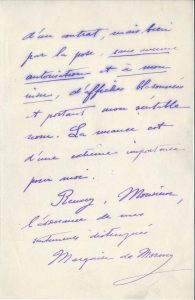 d'un contrat, mais bien
par la pose, sans aucune
autorisation et à mon
insu, d'affiches blasonnées
et portant mon véritable
nom. La nuance est
d'une extrême importance
pour moi.
Recevez, Monsieur,
l'assurance de mes
sentiments distingués
Marquise de Morny